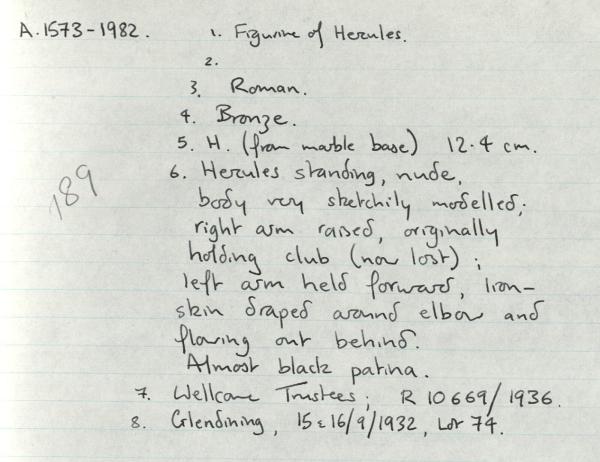 A.1573-1982. 1. Figurine of Hercules.
2.
3. Roman.
4. Bronze.
5. H. (from marble base) 12.4 cm.
6. Hercules standing, nude,
body very sketchily modelled;
right arm raised, originally
holding club (now lost);
left arm held forward, lion-
skin draped around elbow and
flowing out behind.
Almost black patina.
7. Wellcome Trustees; R 10669/1936.
8. Glendining, 15 & 16/9/1932, Lot 74.
189